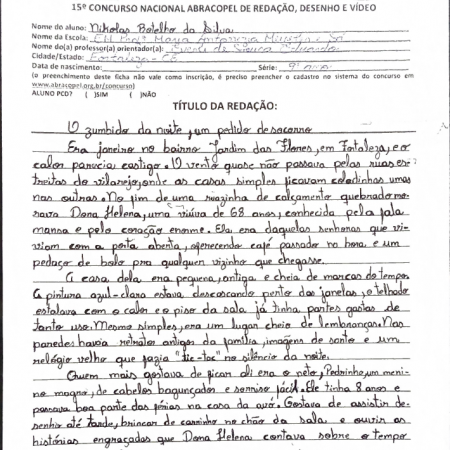 15º CONCURSO NACIONAL ABRACOPEL DE REDAÇÃO, DESENHO E VÍDEO
Nome do aluno: Nikolas Botelho da Silva
Nome da Escola: EM Profª Maria
Nome do(a) professor(a) orientador(a): de Souza
Cidade/Estado: Fortaleza - CE
Data de nascimento: Série: 9º ano
(o preenchimento desta ficha não vale como inscrição, é preciso preencher o cadastro no sistema do concurso em
www.abracopel.org.br/concurso)
ALUNO PCD? ( )SIM ( )NÃO
TÍTULO DA REDAÇÃO:
O zumbido da noite, um pedido de socorro
Era janeiro no bairro Jardim das Flores, em Fortaleza, e o
calor parecia castigo. O vento quase não passava pelas ruas es-
treitas do vilarejo, onde as casas simples ficavam coladinhas umas
nas outras. No fim de uma ruazinha de calçamento quebrado mo-
rava Dona Helena, uma viúva de 68 anos, conhecida pela fala
mansa e pelo coração enorme. Ela era daquelas senhoras que vi-
viam com a porta aberta, oferecendo café passado na hora e um
pedaço de bolo pra qualquer vizinho que chegasse.
A casa dela era pequena, antiga e cheia de marcas do tempo.
A pintura azul-clara estava descascando perto das janelas, o telhado
estalava com o calor e o piso da sala já tinha partes gastas de
tanto uso. Mesmo simples, era um lugar cheio de lembranças. Nas
paredes havia retratos antigos da família, imagens de santo e um
relógio velho que fazia "tic-toc" no silêncio da noite.
Quem mais gostava de ficar ali era o neto, Pedrinho, um meni-
no magro, de cabelos bagunçados e sorriso fácil. Ele tinha 8 anos e
passava boa parte das férias na casa da avó. Gostava de assistir de-
senho até tarde, brincar de carrinho no chão da sala e ouvir as
histórias engraçadas que Dona Helena contava sobre o tempo